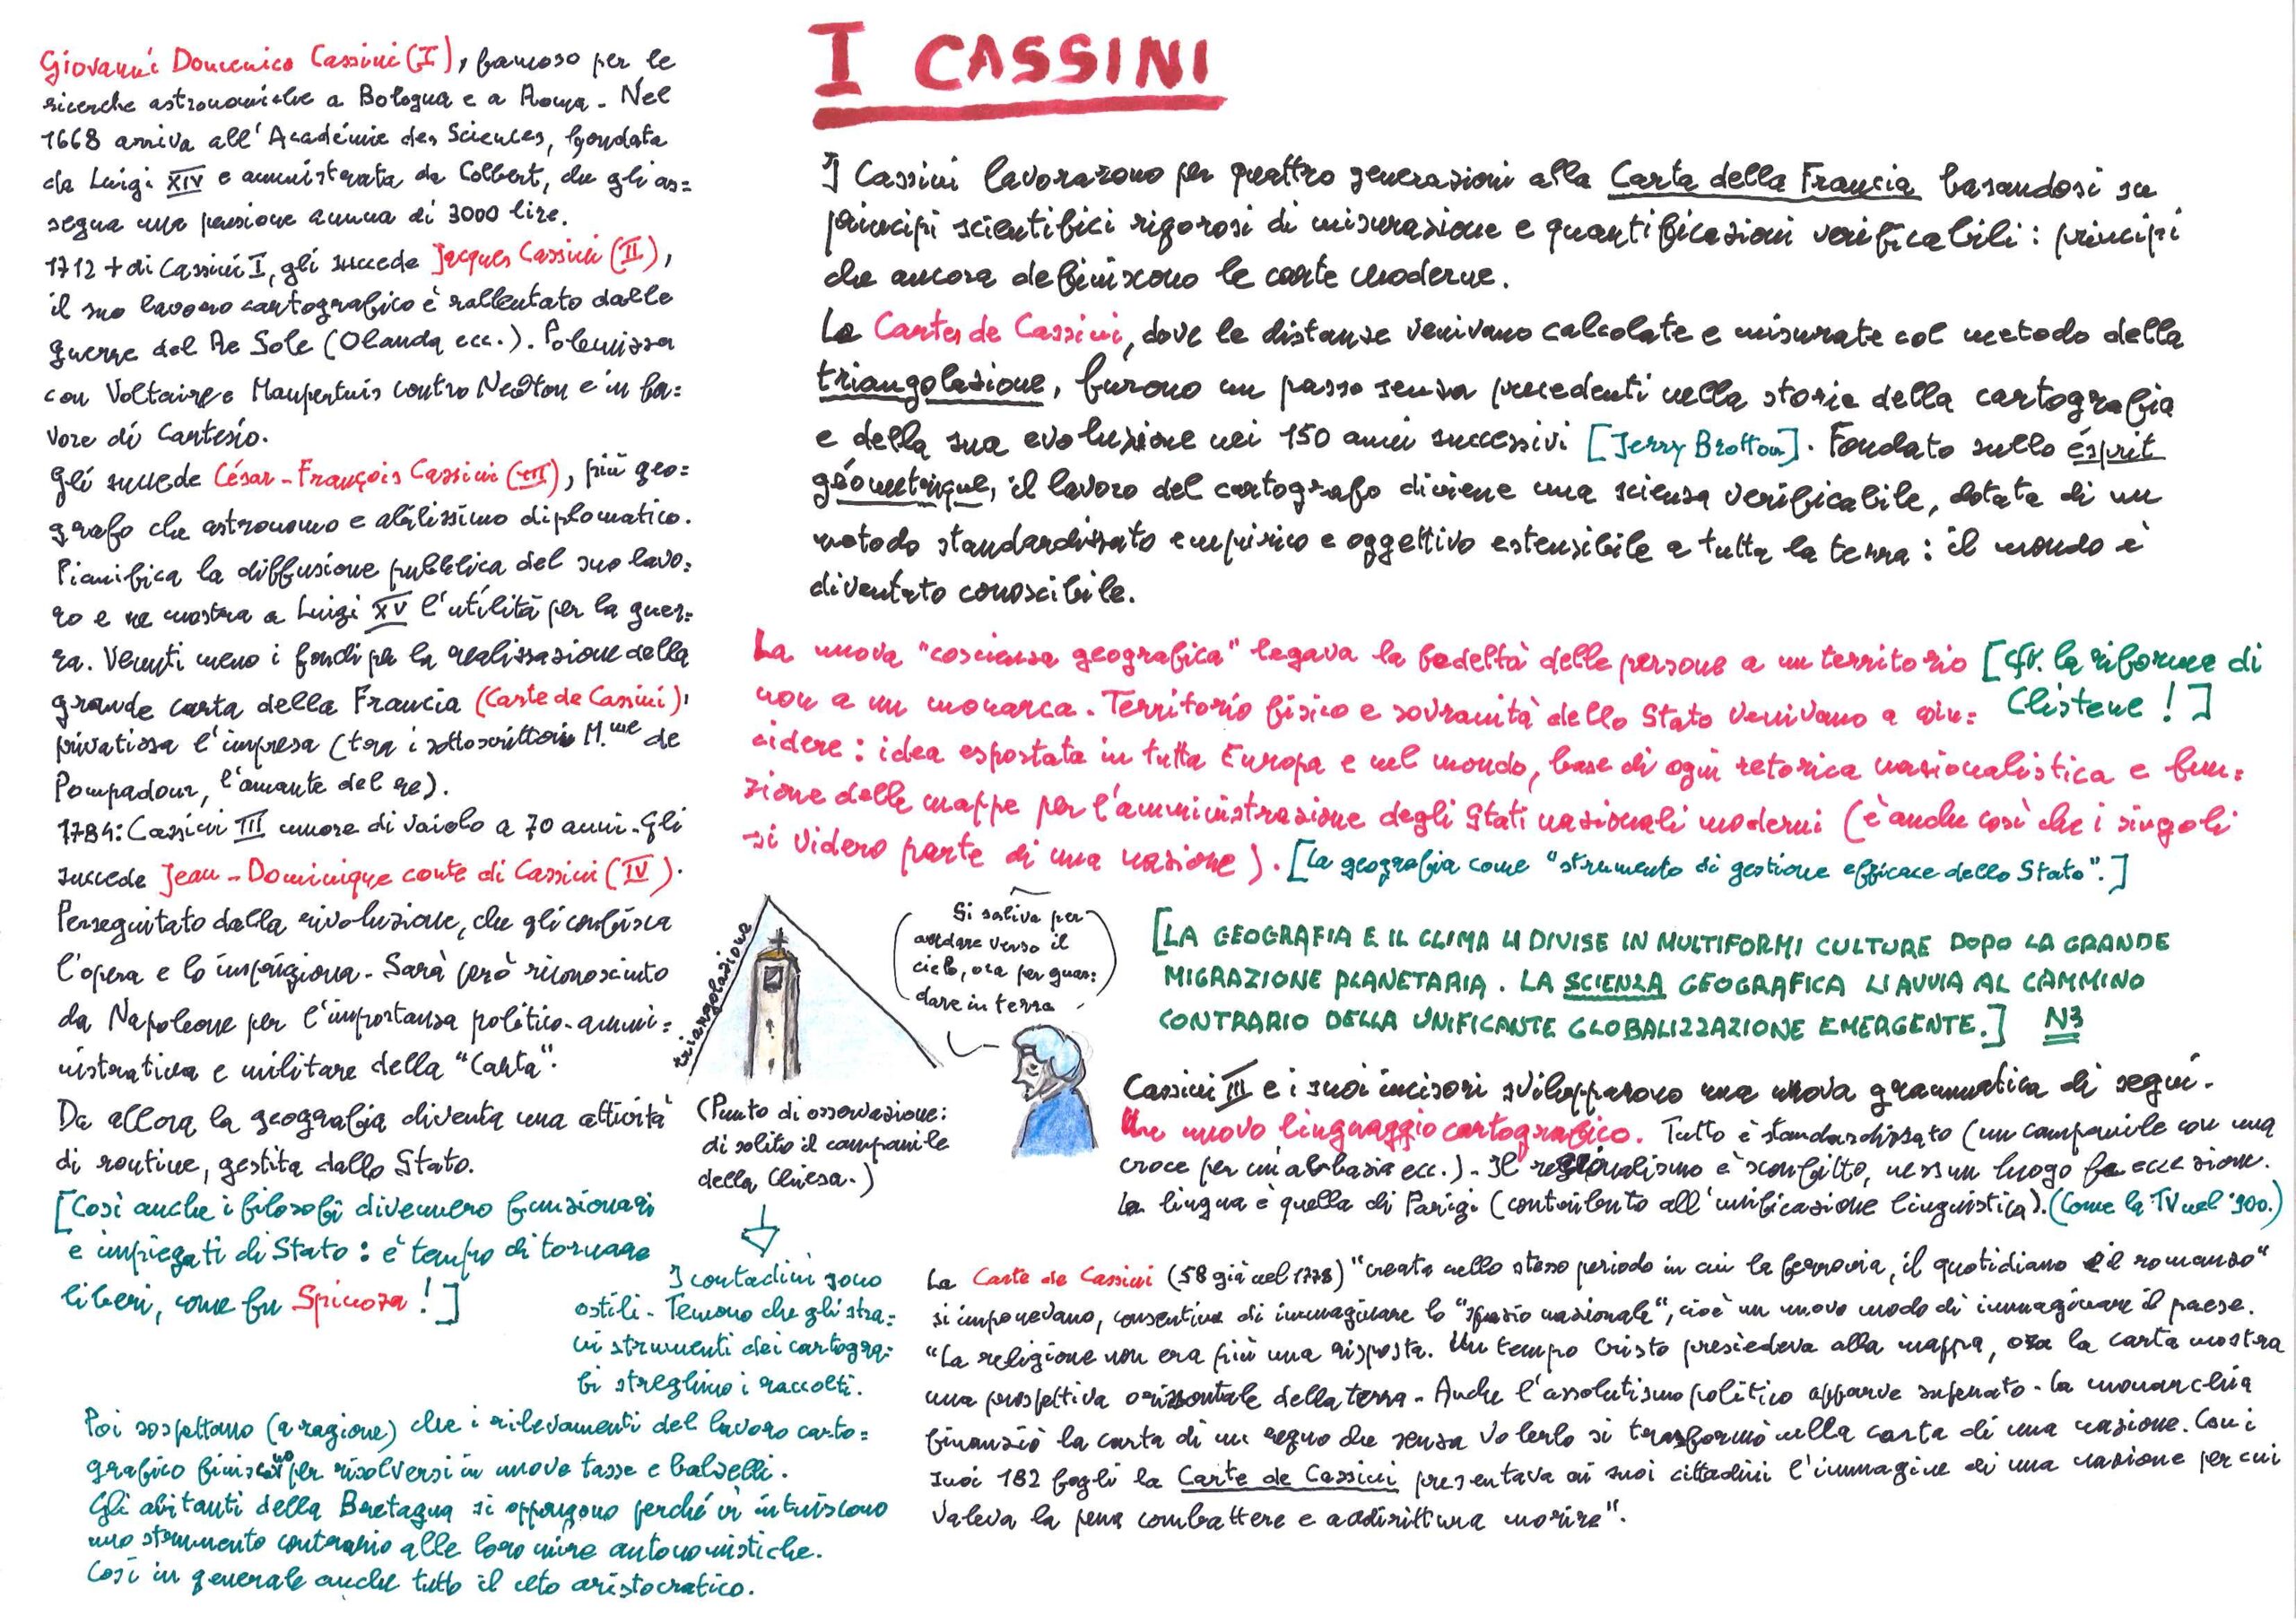 I CASSINI
Giovanni Domenico Cassini (I), famoso per le
ricerche astronomiche a Bologna e a Roma. Nel
1668 arriva all'Académie des Sciences, fondata
da Luigi XIV e amministrata da Colbert, che gli as=
segna una pensione annua di 3000 lire.
1712 + di Cassini I, gli succede Jacques Cassini (II),
il suo lavoro cartografico è rallentato dalle
guerre del Re Sole (Olanda ecc.). Polemizza
con Voltaire e Maupertuis contro Newton e in fa=
vore di Cartesio.
Gli succede César-François Cassini (III), più geo=
grafo che astronomo e abilissimo diplomatico.
Pianifica la diffusione pubblica del suo lavo=
ro e ne mostra a Luigi XV l'utilità per la guer=
ra. Venuti meno i fondi per la realizzazione della
grande carta della Francia (Carte de Cassini),
privatizza l'impresa (tra i sottoscrittori M.me de
Pompadour, l'amante del re).
1784: Cassini III muore di vaiolo a 70 anni. Gli
succede Jean-Dominique conte di Cassini (IV).
Perseguitato dalla rivoluzione, che gli confisca
l'opera e lo imprigiona. Sarà però riconosciuto
da Napoleone per l'importanza politico-ammi=
nistrativa e militare della "Carta".
Da allora la geografia diventa una attività
di routine, gestita dallo Stato.
[Così anche i filosofi divennero funzionari
e impiegati di Stato: è tempo di tornare
liberi, come fu Spinoza!]
I Cassini lavorarono per quattro generazioni alla Carta della Francia basandosi su
principi scientifici rigorosi di misurazione e quantificazioni verificabili: principi
che ancora definiscono le carte moderne.
La Cartes de Cassini, dove le distanze venivano calcolate e misurate col metodo della
triangolazione, furono un passo senza precedenti nella storia della cartografia
e della sua evoluzione nei 150 anni successivi [Jerry Brotton]. Fondato sullo ésprit
géometrique, il lavoro del cartografo diviene una scienza verificabile, dotata di un
metodo standardizzato empirico e oggettivo estensibile a tutta la terra: il mondo è
diventato conoscibile.
La nuova "coscienza geografica" legava la fedeltà delle persone a un territorio [cfr. la riforme di
non a un monarca. Territorio fisico e sovranità dello Stato venivano a coin= Clistene!]
cidere: idea esportata in tutta Europa e nel mondo, base di ogni retorica nazionalistica e fun=
zione delle mappe per l'amministrazione degli Stati nazionali moderni (è anche così che i singoli
si videro parte di una nazione). [La geografia come "strumento di gestione efficace dello Stato".]
triangolazione
Si saliva per
andare verso il
cielo, ora per guar=
dare in terra
(Punto di osservazione:
di solito il campanile
della Chiesa.)
[LA GEOGRAFIA E IL CLIMA LI DIVISE IN MULTIFORMI CULTURE DOPO LA GRANDE
MIGRAZIONE PLANETARIA. LA SCIENZA GEOGRAFICA LI AVVIA AL CAMMINO
CONTRARIO DELLA UNIFICANTE GLOBALIZZAZIONE EMERGENTE.] N3
Cassini III e i suoi incisori svilupparono una nuova grammatica di segni.
Un nuovo linguaggio cartografico. Tutto è standardizzato (un campanile con una
croce per un'abbazia ecc.). Il regionalismo è sconfitto, nessun luogo fa eccezione.
La lingua è quella di Parigi (contributo all'unificazione linguistica). (Come la TV nel '900.)
I contadini sono
ostili. Temono che gli stra=
ni strumenti dei cartogra=
fi streghino i raccolti.
Poi sospettano (a ragione) che i rilevamenti del lavoro carto=
grafico finiscano per risolversi in nuove tasse e balzelli.
Gli abitanti della Bretagna si oppongono perché vi intuiscono
uno strumento contrario alle loro mire autonomistiche.
Così in generale anche tutto il ceto aristocratico.
La Carte de Cassini (58 già nel 1778) "creata nello stesso periodo in cui la ferrovia, il quotidiano e il romanzo"
si imponevano, consentiva di immaginare lo "spazio nazionale", cioè un nuovo modo di immaginare il paese.
"La religione non era più una risposta. Un tempo Cristo presiedeva alla mappa, ora la carta mostra
una prospettiva orizzontale della terra. Anche l'assolutismo politico apparve superato. La monarchia
finanziò la carta di un regno che senza volerlo si trasformò nella carta di una nazione. Con i
suoi 182 fogli la Carte de Cassini presentava ai suoi cittadini l'immagine di una nazione per cui
valeva la pena combattere e addirittura morire".